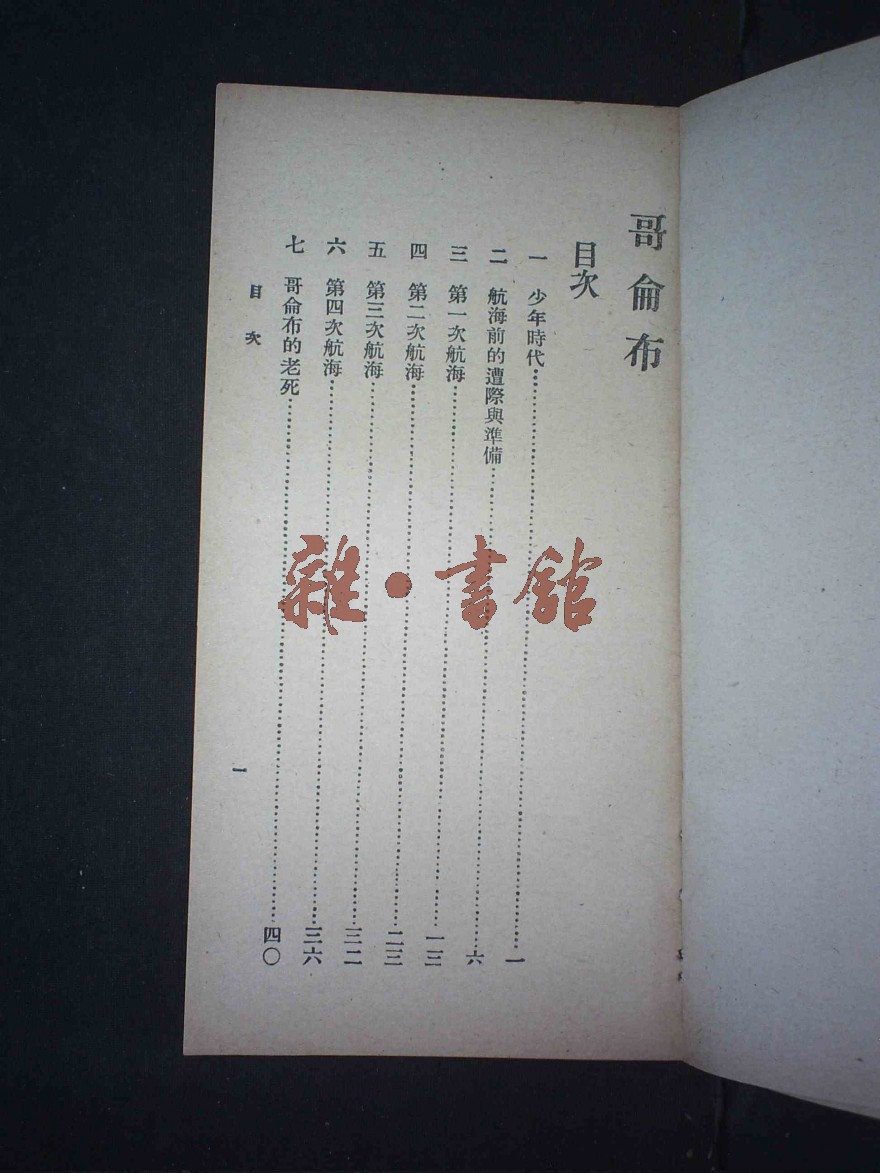 哥侖布
目次
一 少年時代……一
二 航海前的遭際與準備……六
三 第一次航海……一三
四 第二次航海……二三
五 第三次航海……三二
六 第四次航海……三六
七 哥侖布的老死……四〇
目次 一
雜·書館